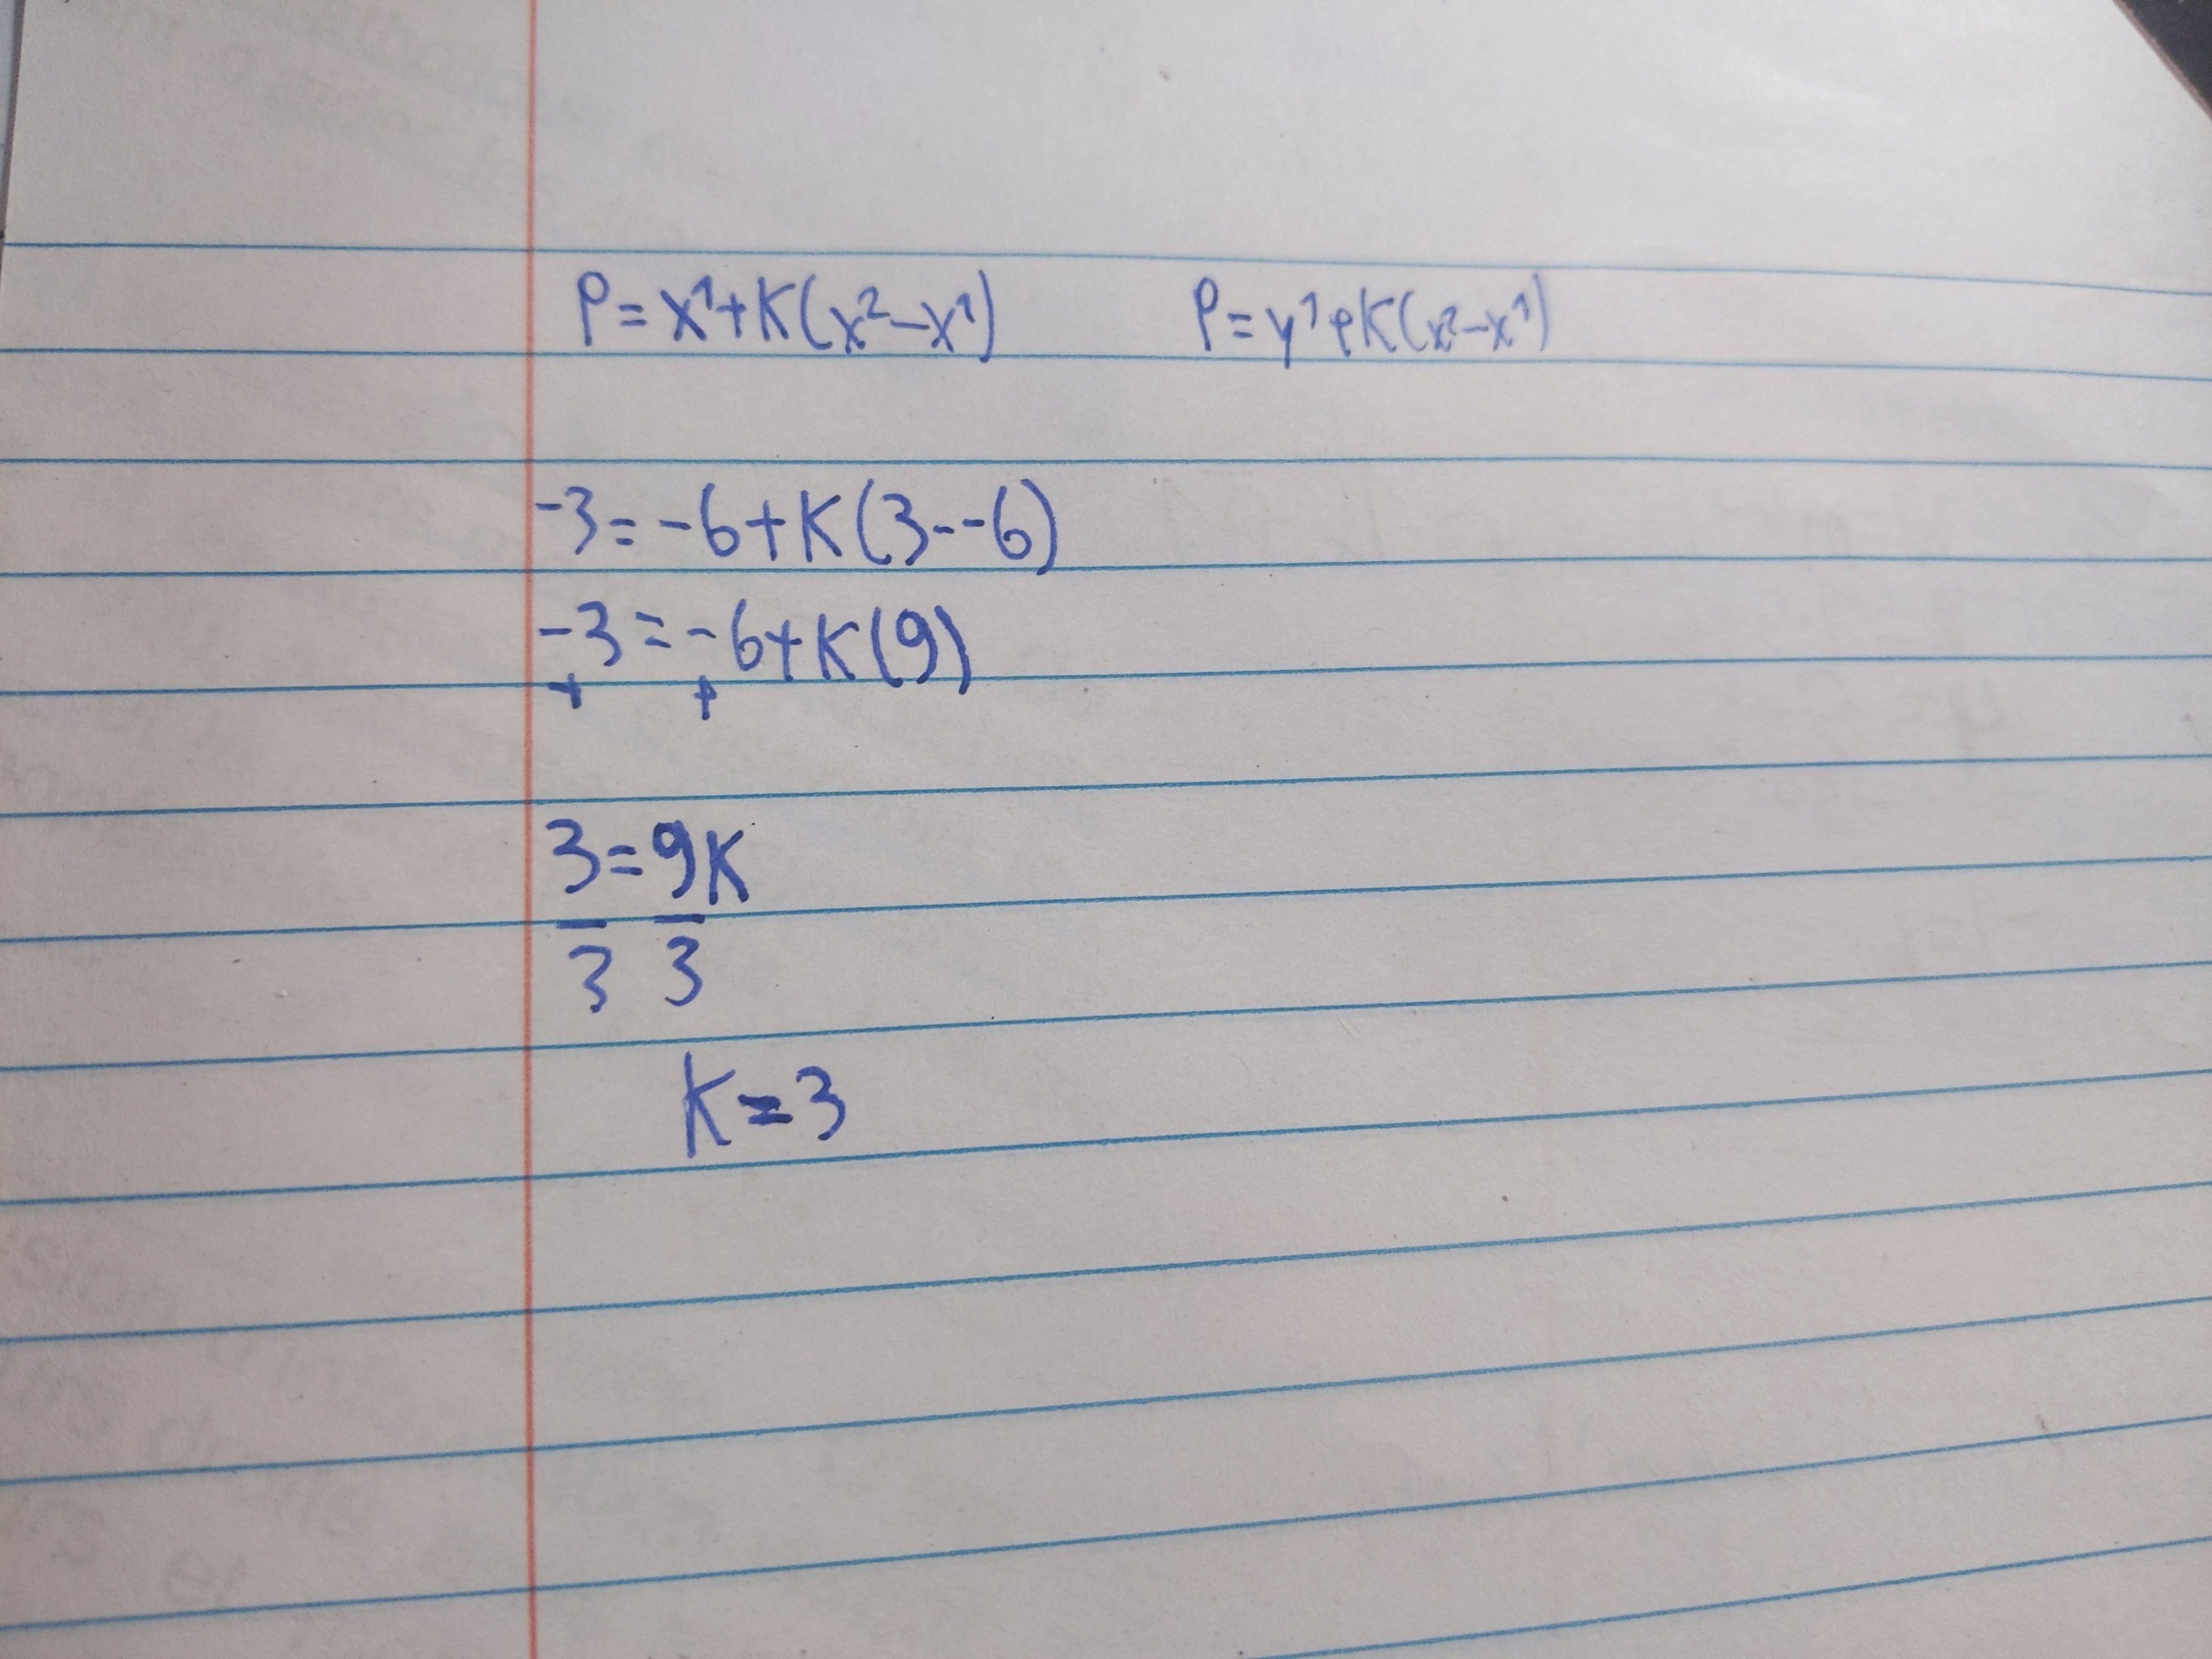 P=x¹+K(x²-x¹) P=y¹+K(x²-x¹)
-3=-6+K(3--6)
-3=-6+K(9)
+ +
3=9K
3 3
K=3